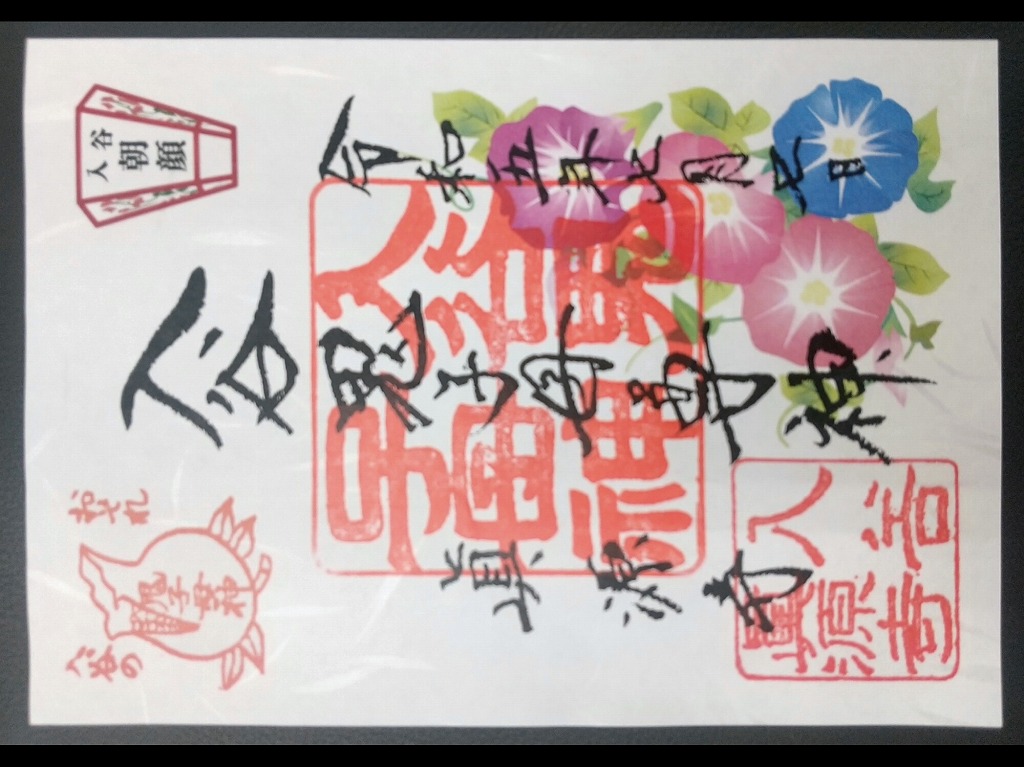 入谷
朝顔
令和五年七月七日
入谷鬼子母尊神
真源寺
入谷鬼
子母神
おそれ
入谷の
鬼子母神
入谷
眞源寺